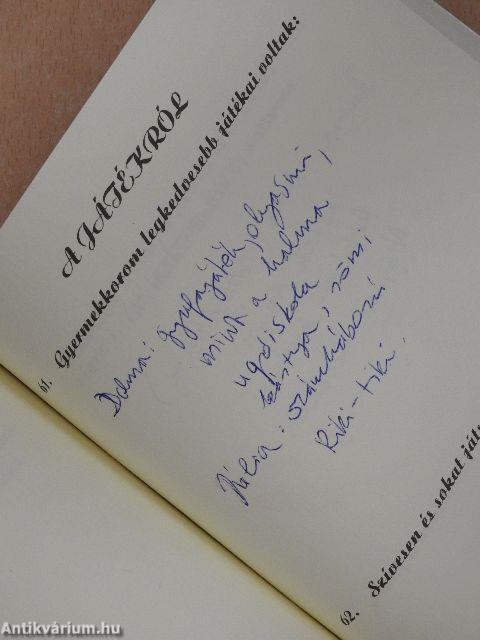 A JÁTÉKRÓL
61. Gyermekkorom legkedvesebb játékai voltak:
Dalma: gyufajáték, olyasmi,
mint a halma
ugróiskola
kártya, römi
Júlia: számháború
Riki-tiki.
62. Szívesen és sokat
Antikvárium.hu